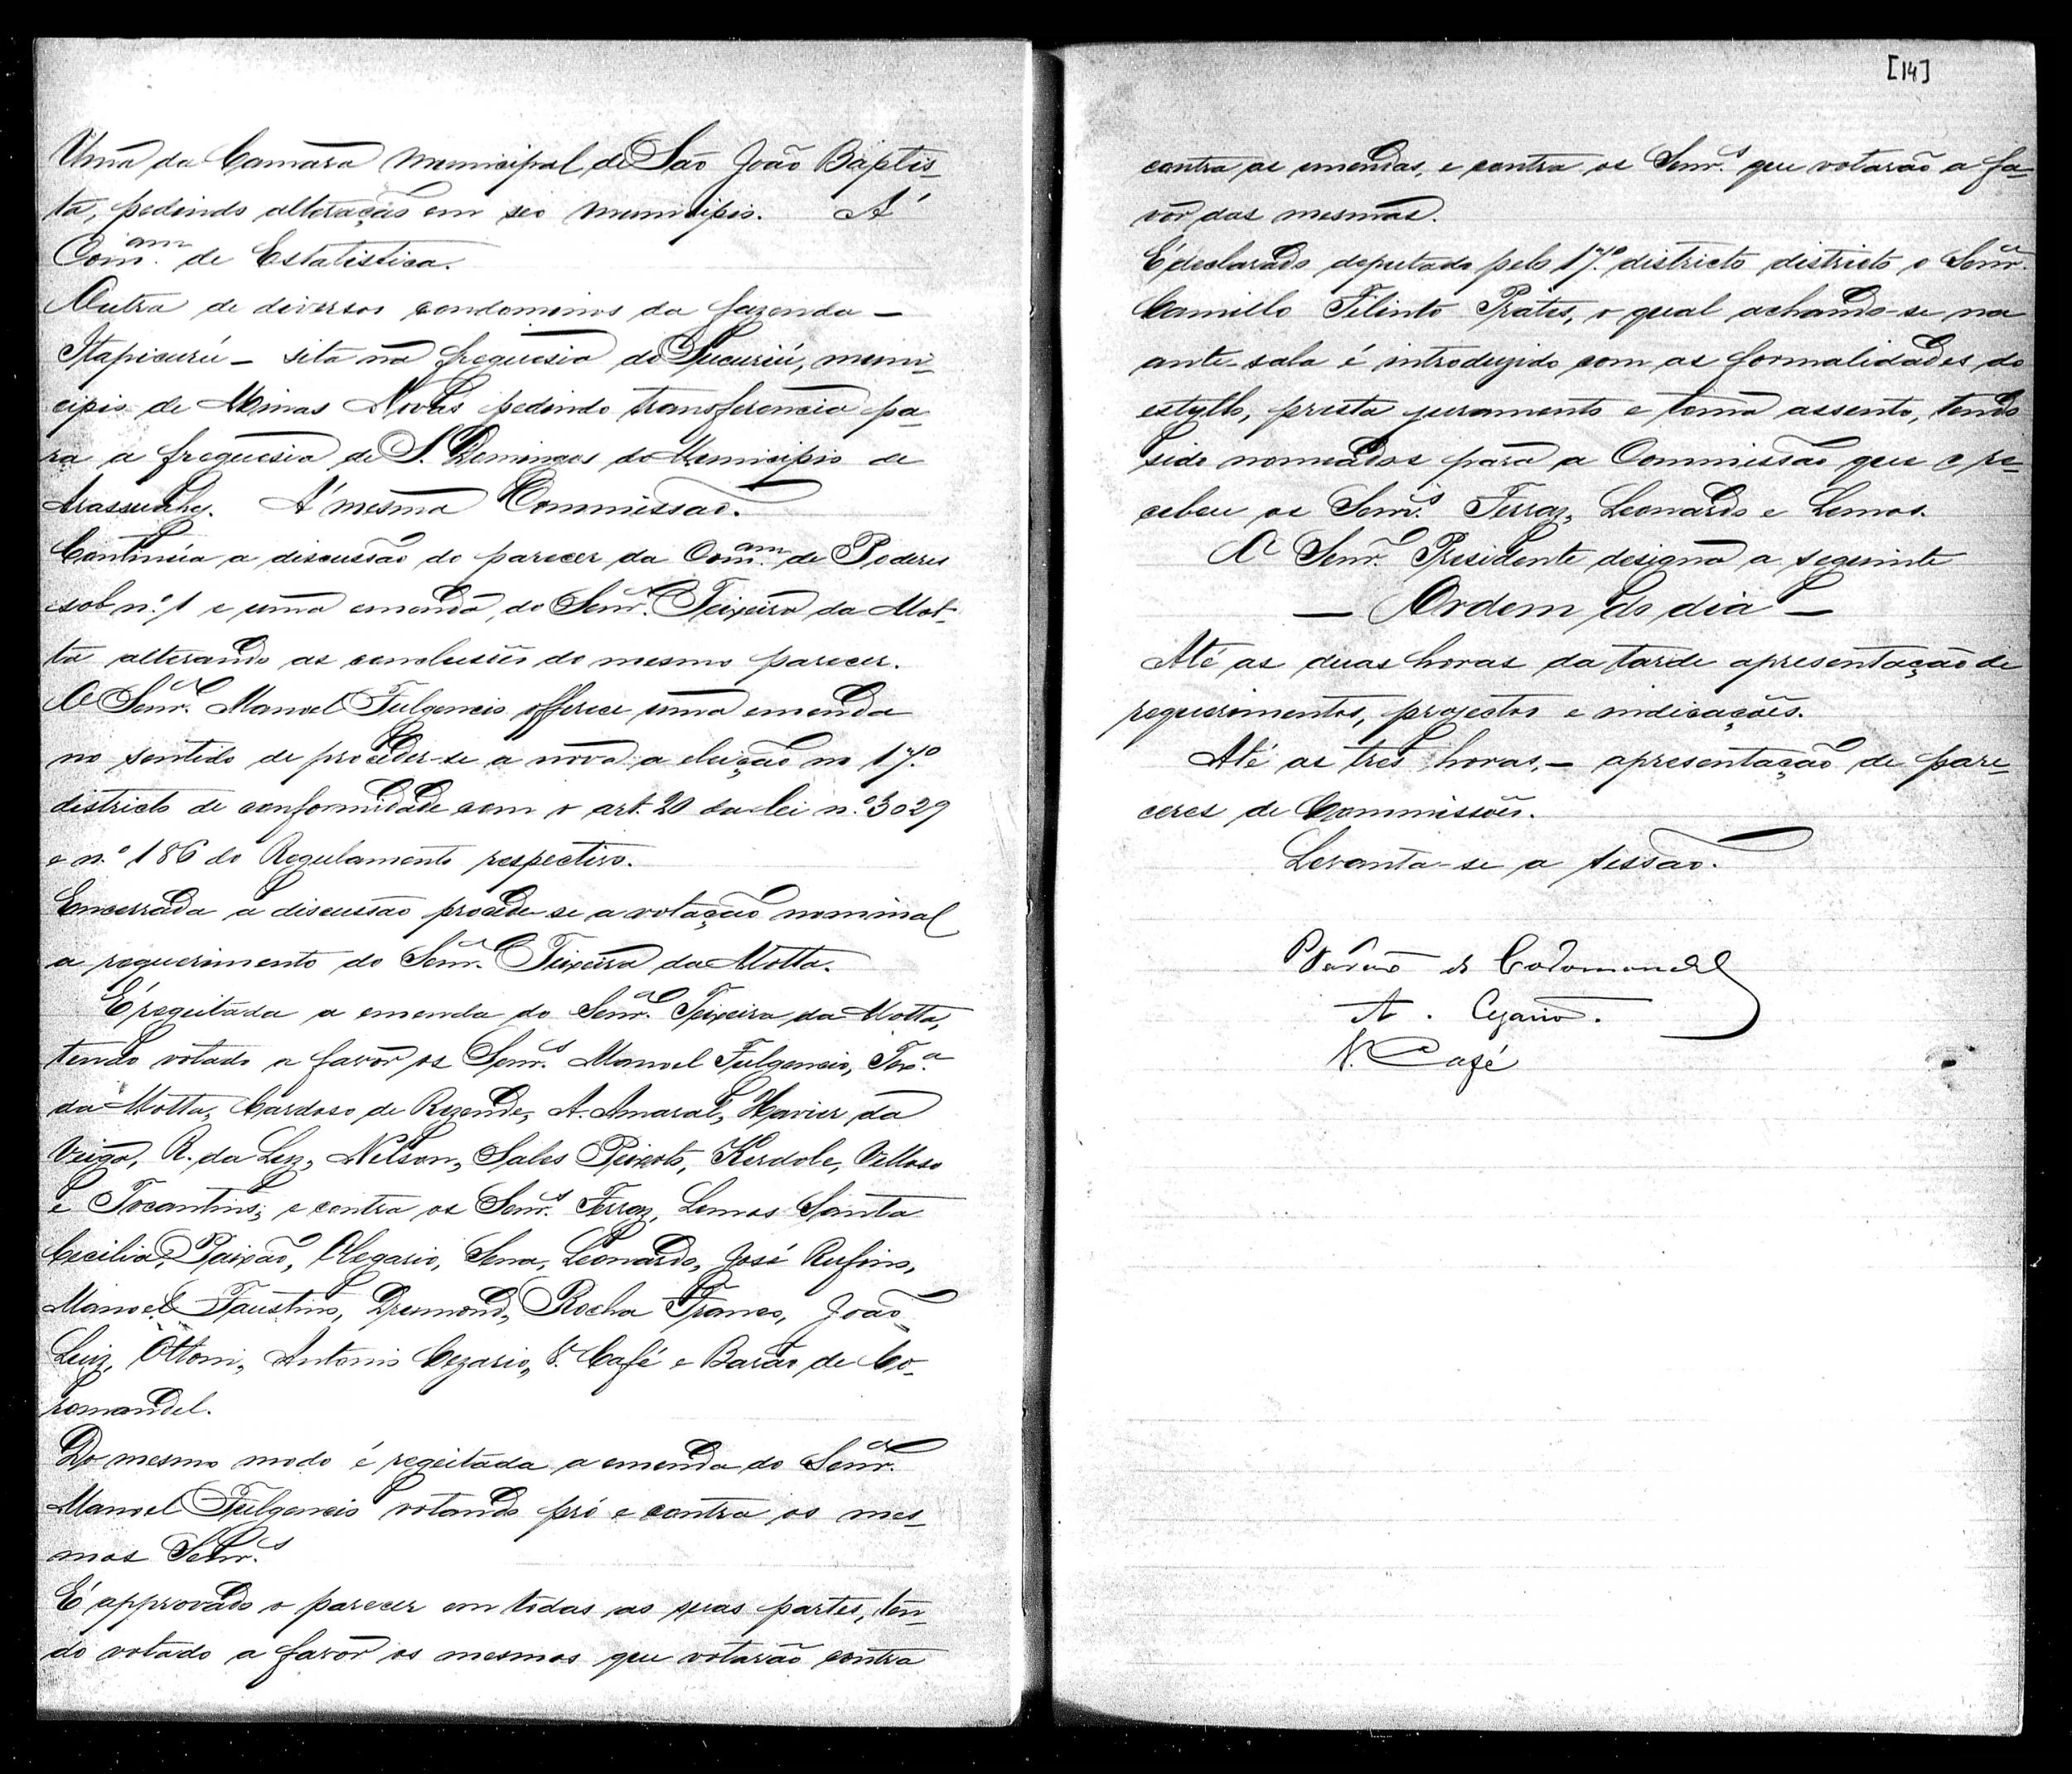 Uma da Camara Municipal de São João Baptis-
ta, pedindo alteração em seo municipio. Á
Com.am de Estatistica.
Outra de diversos condominos da fazenda —
Itapicurú — sita na freguesia do Sucuriú, muni-
cipio de Minas Novas pedindo transferencia pa-
ra a freguesia de S. Domingos do Municipio de
Arassuahy. Á mesma Commissão.
Continúa a discussão do parecer da Com.am de Poderes
sob n.º 1 e uma emenda do Senr. Teixeira da Mot-
ta alterando as conclusões do mesmo parecer.
O Senr. Manoel Fulgencio offerece uma emenda
no sentido de proceder-se a nova a eleição no 17.º
districto de conformidade com o art. 20 da lei n.º 3029
e n.º 186 do Regulamento respectivo.
Encerrada a discussão procede-se a votação nominal
a requerimento do Senr. Teixeira da Motta.
É regeitada a emenda do Senr. Teixeira da Motta,
tendo votado a favor os Senr.s Manoel Fulgencio, Teix.a
da Motta, Cardoso de Rezende, A. Amaral, Xavier da
Veiga, R. da Luz, Nelson, Sales Peixoto, Kerdole, Velloso
e Tocantins; e contra os Senr.s Ferraz, Lemos Santa
Cecilia, Paixão, Olegario, Sena, Leonardo, José Rufino,
Manoel Faustino, Drumond, Rocha Franco, João
Luiz, Ottoni, Antonio Cezario, Café e Barão de Co-
romandel.
Do mesmo modo é regeitada a emenda do Senr.
Manoel Fulgencio votando pró e contra os mes-
mos Senr.s
É approvado o parecer em todas as suas partes, ten-
do votado a favor os mesmos que votarão contra
[14]
contra as emendas, e contra os Senr.s que votarão a fa-
vor das mesmas.
É declarado deputado pelo 17.º districto districto o Senr.
Camillo Filinto Prates, o qual achando-se na
ante-sala é introdusido com as formalidades do
estyllo, presta juramento e toma assento, tendo
sido nomeados para a Commissão que o re-
cebeu os Senr.s Ferraz, Leonardo e Lemos.
O Senr. Presidente designa a seguinte
— Ordem do dia —
Até as duas horas da tarde apresentação de
requerimentos, projectos e indicações.
Até as tres horas, — apresentação de pare-
ceres de Commissões.
Levanta-se a sessão.
Barão de Coromandel
A. Cezario.
N. Café